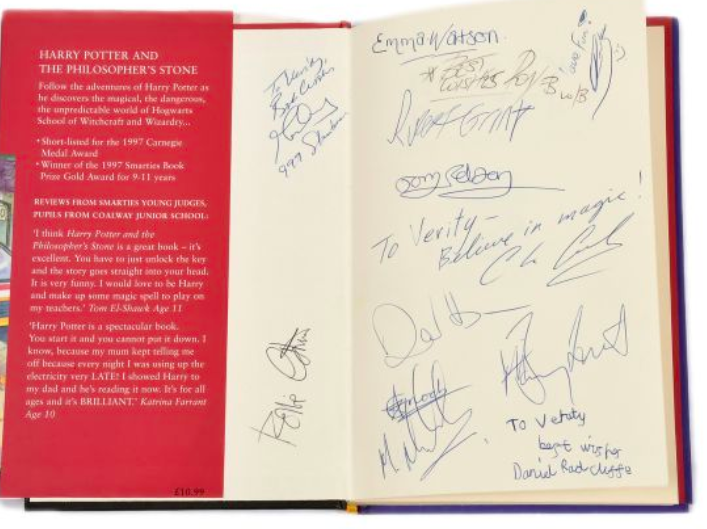 HARRY POTTER AND
THE PHILOSOPHER'S STONE
Follow the adventures of Harry Potter as
he discovers the magical, the dangerous,
the unpredictable world of Hogwarts
School of Witchcraft and Wizardry...
• Short-listed for the 1997 Carnegie
Medal Award
• Winner of the 1997 Smarties Book
Prize Gold Award for 9-11 years
REVIEWS FROM SMARTIES YOUNG JUDGES,
PUPILS FROM COALWAY JUNIOR SCHOOL:
'I think Harry Potter and the
Philosopher's Stone is a great book – it's
excellent. You have to just unlock the key
and the story goes straight into your head.
It is very funny. I would love to be Harry
and make up some magic spell to play on
my teachers.' Tom El-Shawk Age 11
'Harry Potter is a spectacular book.
You start it and you cannot put it down. I
know, because my mum kept telling me
off because every night I was using up the
electricity very LATE! I showed Harry to
my dad and he's reading it now. It's for all
ages and it's BRILLIANT.' Katrina Farrant
Age 10
£10.99
To Verity,
Best
Emma Watson.
BEST
WISHES
Rupert Grint
To Verity –
Believe in magic!
To Verity
best wishes
Daniel Radcliffe